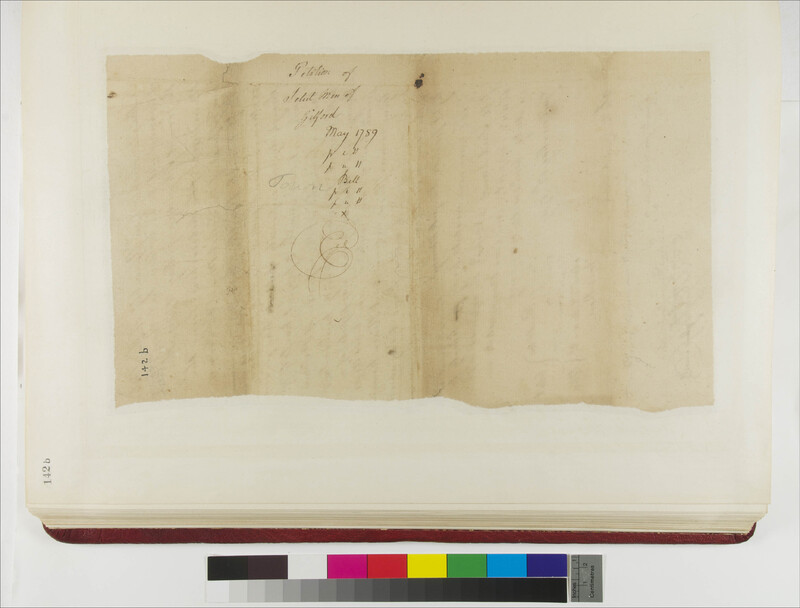 Petition of
Select Men of
Gilford
May 1789
p c "
p u "
Bill
Town
p h "
p u "
x
142 b
142 b
Centimetres